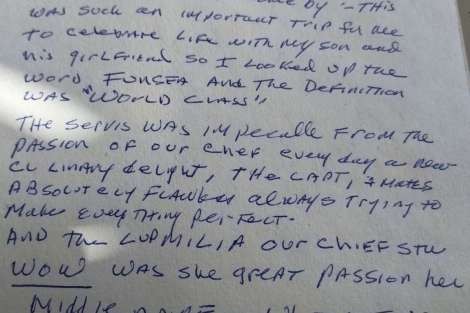 by - This
was such an important trip for me
to celebrate life with my son and
his girlfriend so I looked up the
word, FUNSEA And The Definition
was "World Class"!
The servis was impecalle From the
passion of our chef every day a new
culinary delight, The CAPT, + mates
Absolutely Flawless always Trying to
Make Everything Perfect.
And the LUDMILIA our chief stw
WOW was she great passion her
Middle